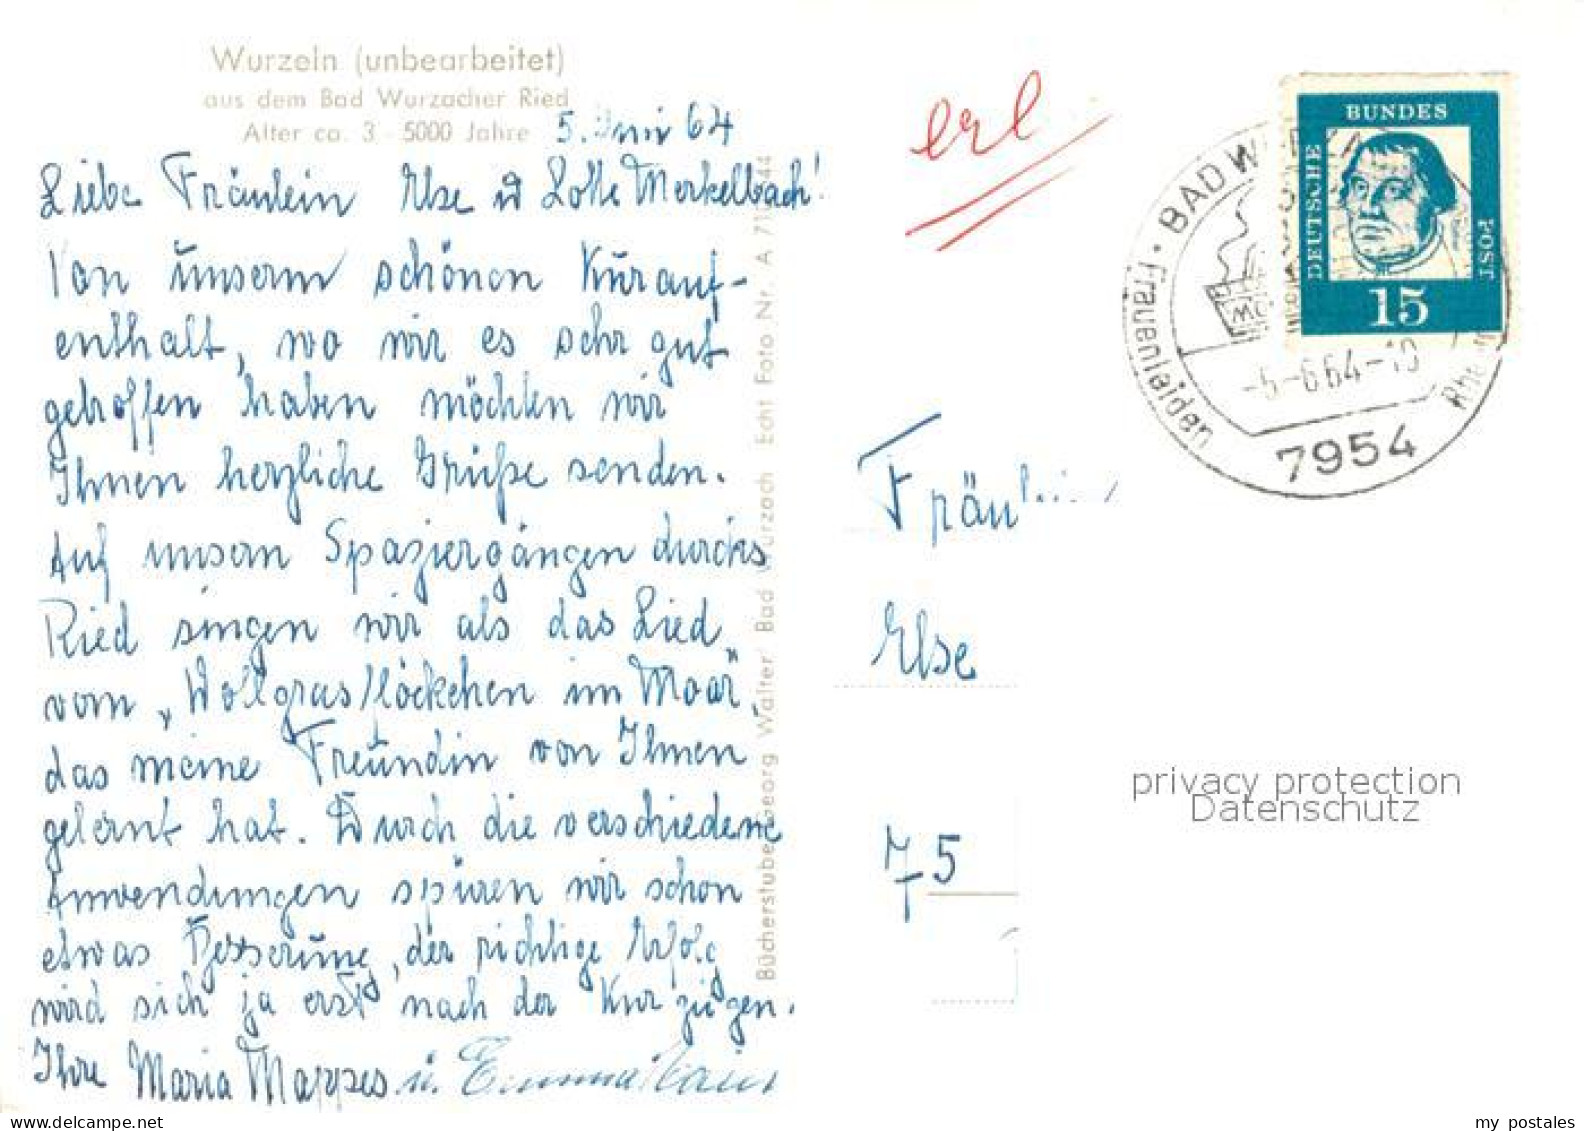 Wurzeln (unbearbeitet)
aus dem Bad Wurzacher Ried
Alter ca. 3 - 5000 Jahre
5. Juni 64
Liebe Fräulein Else u Lotte Merkelbach!
Von unserm schönen Kurauf-
enthalt, wo wir es sehr gut
getroffen haben möchten wir
Ihnen herzliche Grüße senden.
Auf unsern Spaziergängen durchs
Ried singen wir als das Lied
vom „Wollgrasflöckchen im Moor",
das meine Freundin von Ihnen
gelernt hat. Durch die verschiedene
Anwendungen spüren wir schon
etwas Besserung, der richtige Erfolg
wird sich ja erst nach der Kur zeigen.
Ihre Maria Mappes u. Emma
Bücherstube Georg Walter Bad Wurzach Echt Foto Nr. A
erl
DEUTSCHE BUNDES POST
15
BAD WURZACH
Frauenleiden
-5-6.64-10
7954
Fräulein
Else
75
privacy protection
Datenschutz
my postales
www.delcampe.net